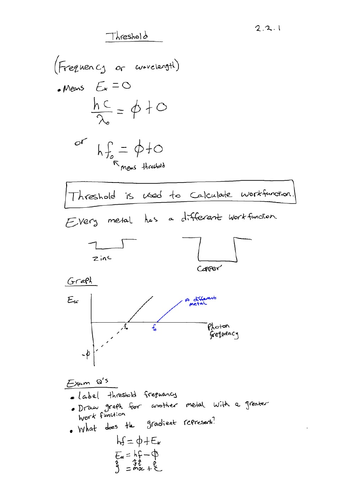 Threshold
2.2.1
(Frequency or wavelength)
• Means Eₖ = 0
hc/λ₀ = ϕ + 0
or
hf₀ = ϕ + 0
means threshold
Threshold is used to calculate workfunction
Every metal has a different workfunction
Zinc
Copper
Graph
Eₖ
a different metal
f₀
f₀
Photon frequency
-ϕ
Exam Q's
• Label threshold frequency
• Draw graph for another metal with a greater
work function
• What does the gradient represent?
hf = ϕ + Eₖ
Eₖ = hf - ϕ
y = mx + c